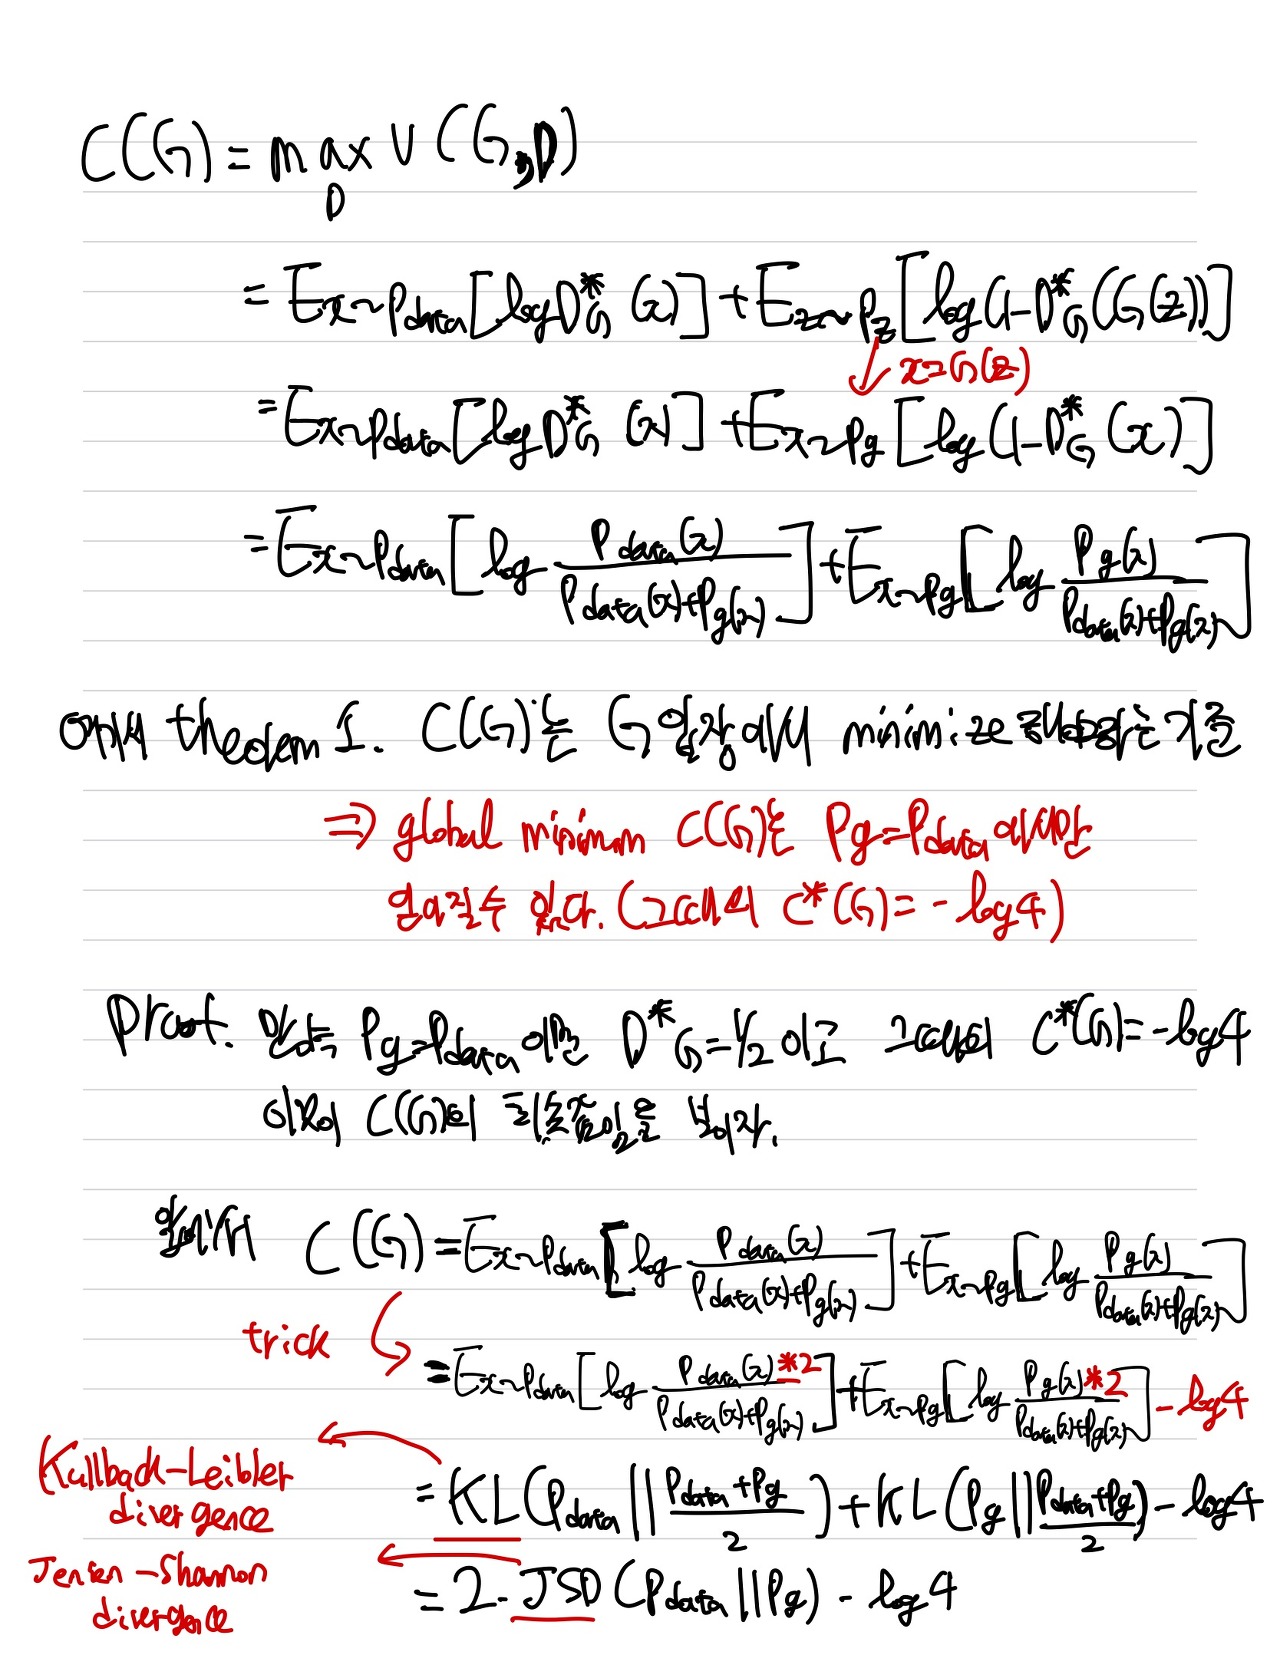 C(G) = max V(G,D)
D
= E_{x~P_data}[log D*_G(x)] + E_{z~P_z}[log(1-D*_G(G(z))]
x=G(z)
= E_{x~P_data}[log D*_G(x)] + E_{x~P_g}[log(1-D*_G(x)]
= E_{x~P_data}[log P_data(x) / P_data(x)+P_g(x)] + E_{x~P_g}[log P_g(x) / P_data(x)+P_g(x)]
여기서 theorem 1. C(G)는 G 입장에서 minimize 해야하는 기준
⇒ global minimum C(G)는 P_g=P_data 에서만
얻어질수 있다. (그때의 C*(G) = -log4)
Proof. 만약 P_g=P_data 이면 D*_G=1/2 이고 그때의 C*(G)=-log4
이것이 C(G)의 최솟값임을 보이자.
앞에서 C(G) = E_{x~P_data}[log P_data(x) / P_data(x)+P_g(x)] + E_{x~P_g}[log P_g(x) / P_data(x)+P_g(x)]
trick
= E_{x~P_data}[log P_data(x)*2 / P_data(x)+P_g(x)] + E_{x~P_g}[log P_g(x)*2 / P_data(x)+P_g(x)] - log4
Kullback-Leibler
divergence
= KL(P_data || P_data+P_g / 2) + KL(P_g || P_data+P_g / 2) - log4
Jensen-Shannon
divergence
= 2·JSD(P_data || P_g) - log4